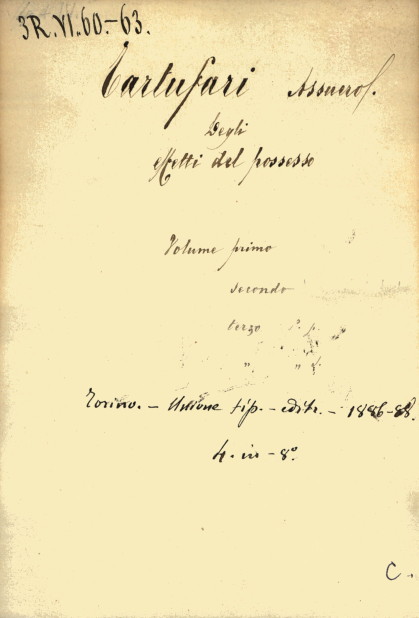 3R.VI.60.-63.
Tartufari Assuero.
Degli
Effetti del possesso
Volume primo
secondo
terzo 1ª p.
" "
Torino. - Unione tip. - editr. - 1886-88.
4. in - 8°
C.